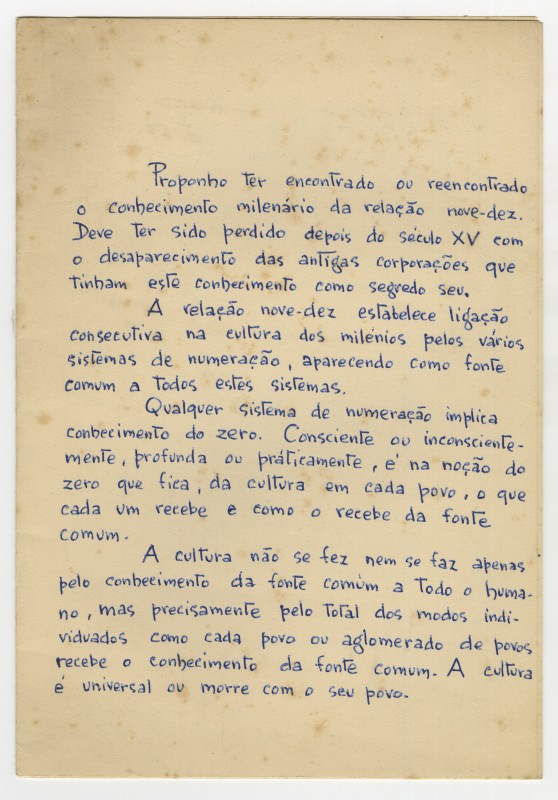 Proponho ter encontrado ou reencontrado
o conhecimento milenário da relação nove-dez.
Deve ter sido perdido depois do século XV com
o desaparecimento das antigas corporações que
tinham este conhecimento como segredo seu.
A relação nove-dez estabelece ligação
consecutiva na cultura dos milénios pelos vários
sistemas de numeração, aparecendo como fonte
comum a todos estes sistemas.
Qualquer sistema de numeração implica
conhecimento do zero. Consciente ou inconsciente-
mente, profunda ou práticamente, é na noção do
zero que fica, da cultura em cada povo, o que
cada um recebe e como o recebe da fonte
comum.
A cultura não se fez nem se faz apenas
pelo conhecimento da fonte comum a todo o huma-
no, mas precisamente pelo total dos modos indi-
viduados como cada povo ou aglomerado de povos
recebe o conhecimento da fonte comum. A cultura
é universal ou morre com o seu povo.